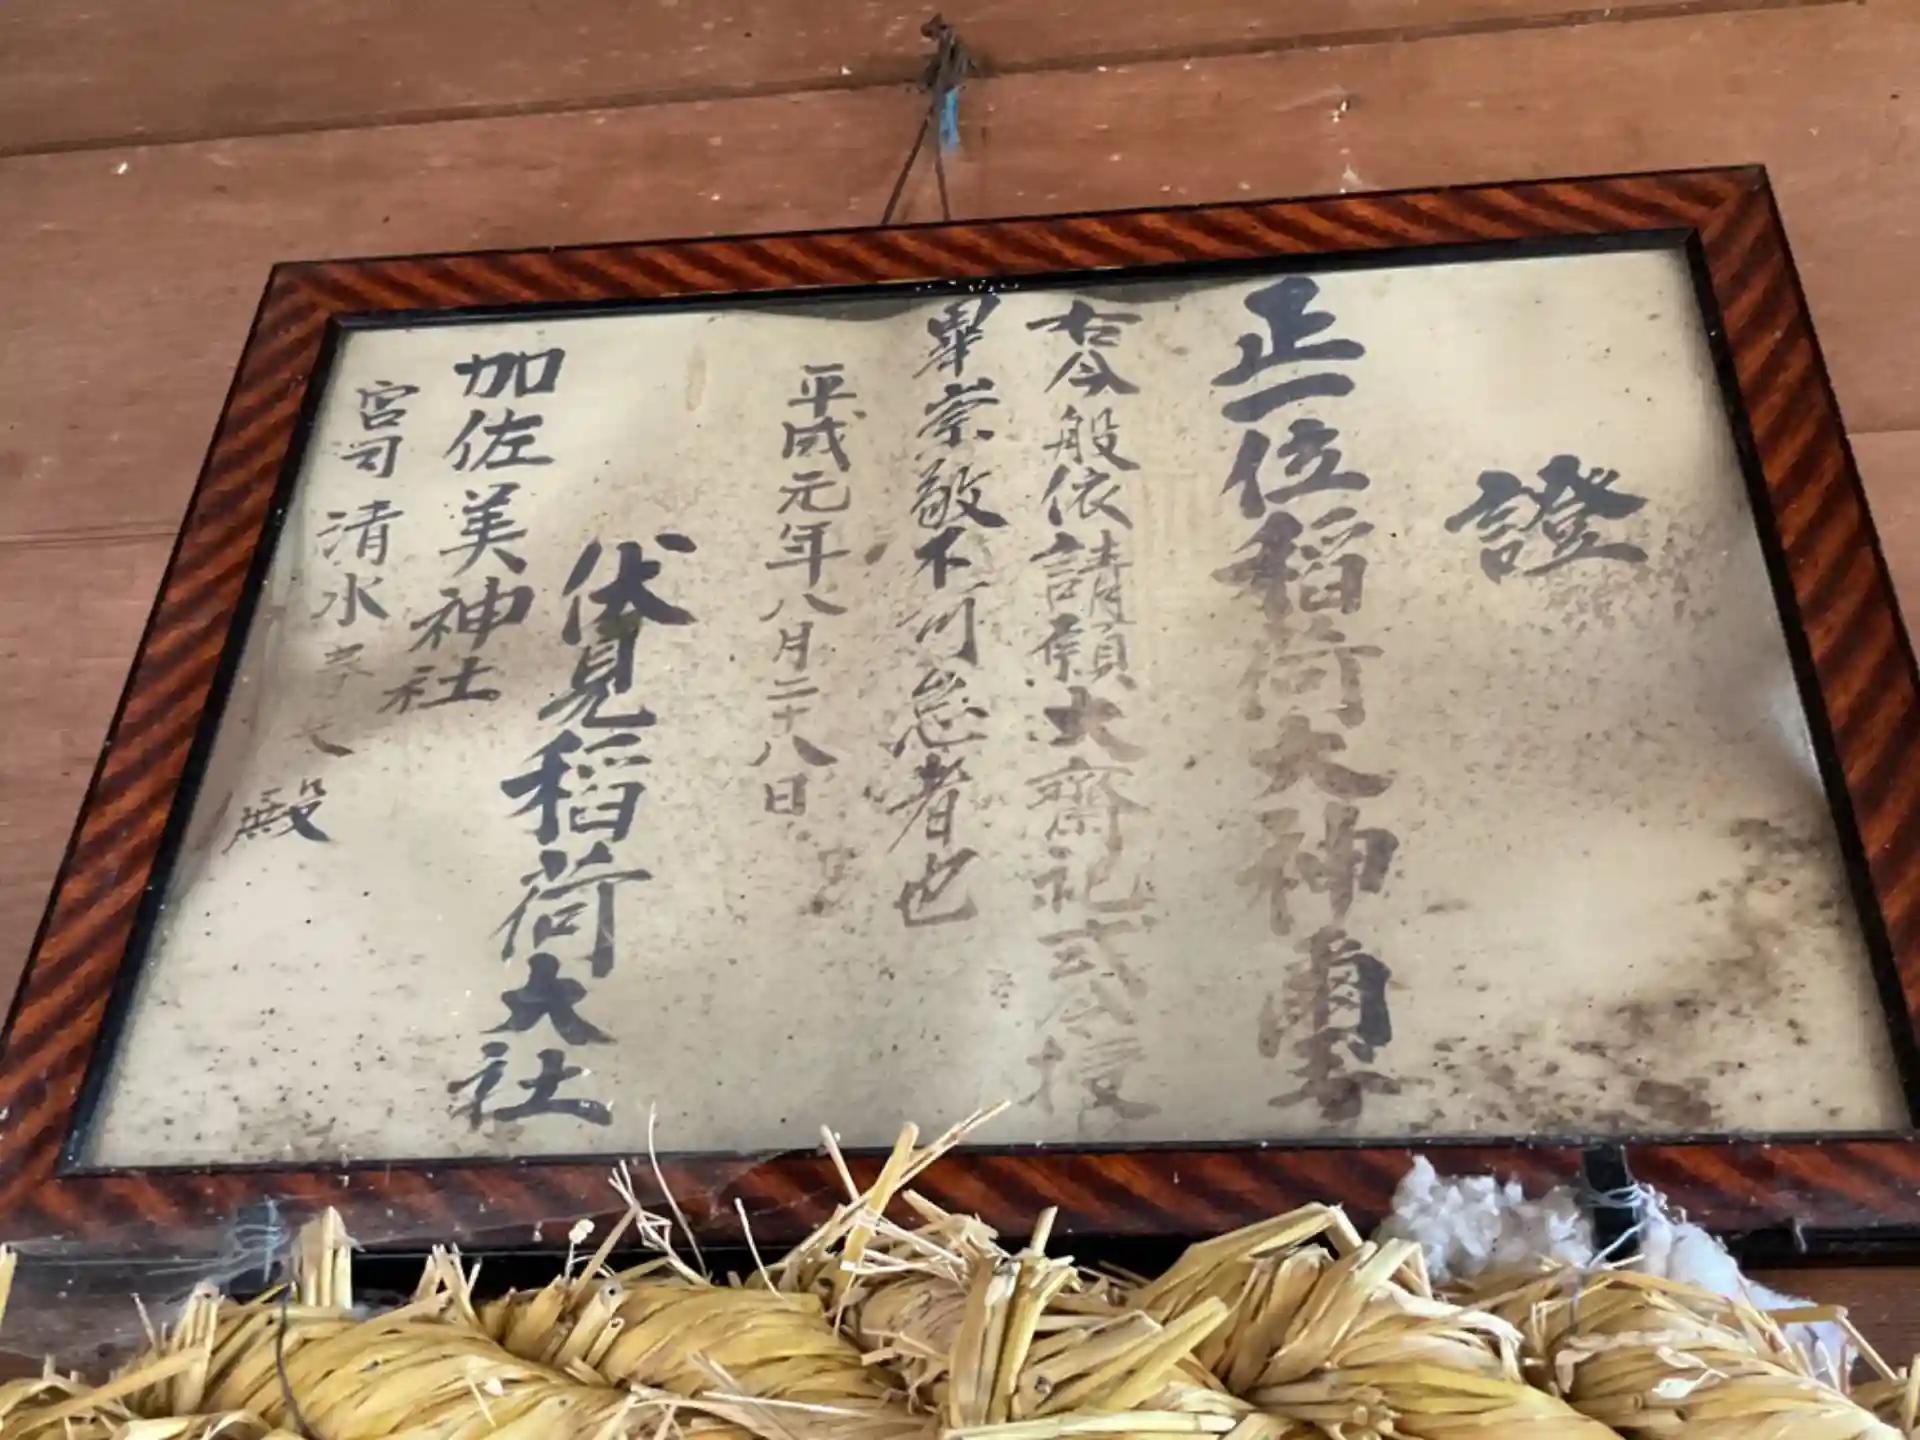 證
正一位稻荷大神璽
右今般依請願大齋祀式令授
畢崇敬不可怠者也
平成元年八月二十八日
伏見稻荷大社
加佐美神社
宮司 清水 殿